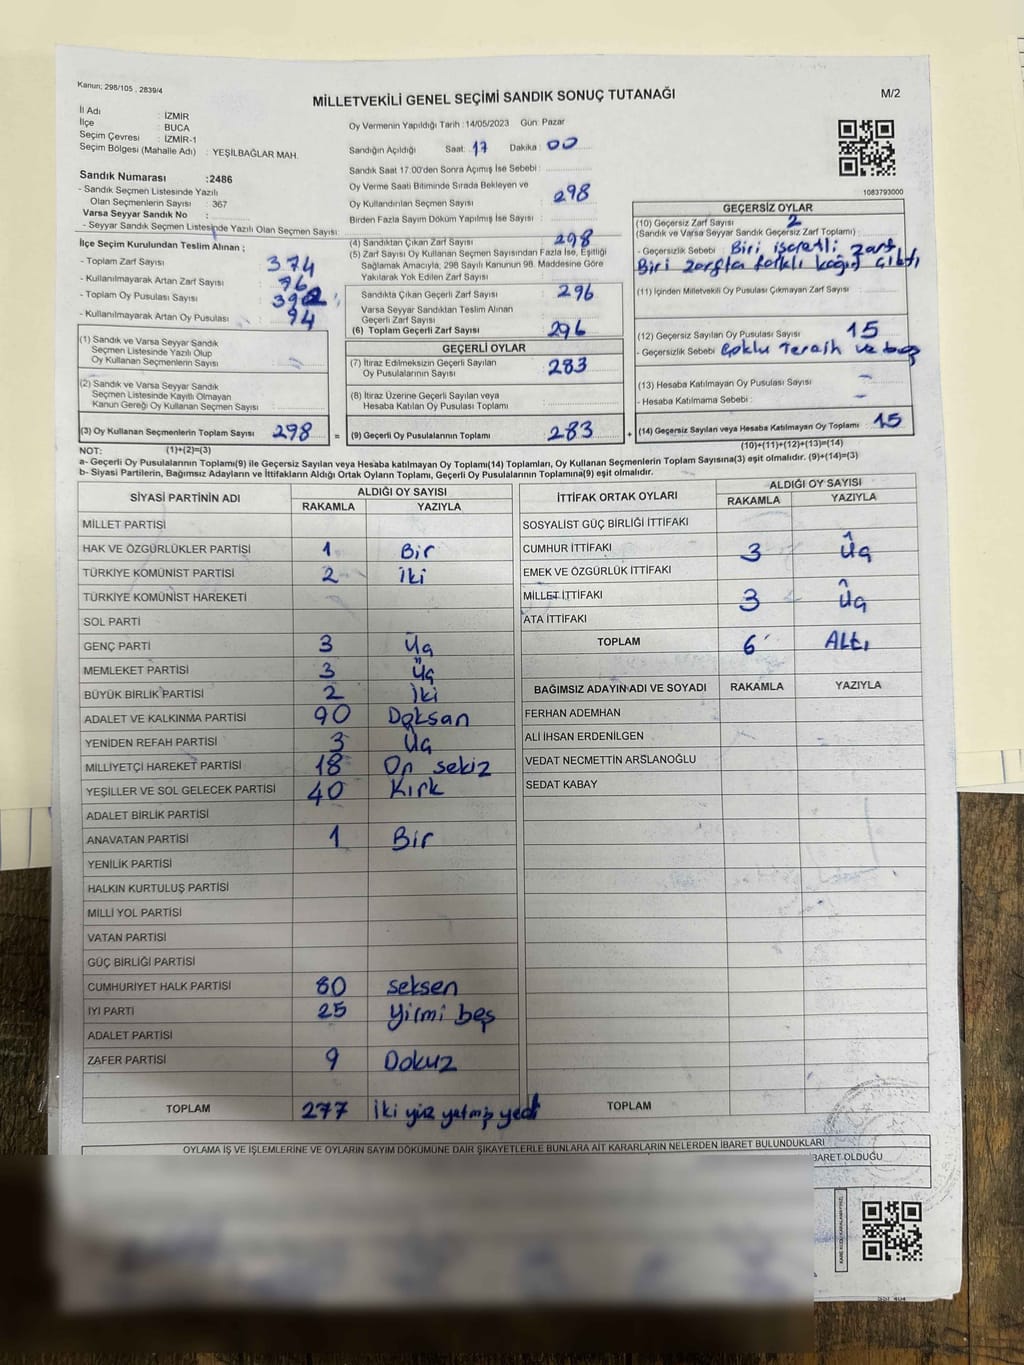 Kanun; 298/105 , 2839/4
MİLLETVEKİLİ GENEL SEÇİMİ SANDIK SONUÇ TUTANAĞI
M/2
İl Adı : İZMİR
İlçe : BUCA
Seçim Çevresi : İZMİR-1
Seçim Bölgesi (Mahalle Adı) : YEŞİLBAĞLAR MAH.
Sandık Numarası :2486
- Sandık Seçmen Listesinde Yazılı
Olan Seçmenlerin Sayısı : 367
Varsa Seyyar Sandık No :
- Seyyar Sandık Seçmen Listesinde Yazılı Olan Seçmen Sayısı:
İlçe Seçim Kurulundan Teslim Alınan ;
- Toplam Zarf Sayısı : 374
- Kullanılmayarak Artan Zarf Sayısı : 76
- Toplam Oy Pusulası Sayısı : 392
- Kullanılmayarak Artan Oy Pusulası : 94
(1) Sandık ve Varsa Seyyar Sandık
Seçmen Listesinde Yazılı Olup
Oy Kullanan Seçmenlerin Sayısı :
(2) Sandık ve Varsa Seyyar Sandık
Seçmen Listesinde Kayıtlı Olmayan
Kanun Gereği Oy Kullanan Seçmen Sayısı :
(3) Oy Kullanan Seçmenlerin Toplam Sayısı 298 =
Oy Vermenin Yapıldığı Tarih :14/05/2023 Gün: Pazar
Sandığın Açıldığı Saat: 17 Dakika : 00
Sandık Saat 17.00'den Sonra Açılmış İse Sebebi :
Oy Verme Saati Bitiminde Sırada Bekleyen ve
Oy Kullandırılan Seçmen Sayısı : 298
Birden Fazla Sayım Döküm Yapılmış İse Sayısı :
(4) Sandıktan Çıkan Zarf Sayısı : 298
(5) Zarf Sayısı Oy Kullanan Seçmen Sayısından Fazla İse, Eşitliği
Sağlamak Amacıyla, 298 Sayılı Kanunun 98. Maddesine Göre
Yakılarak Yok Edilen Zarf Sayısı :
Sandıkta Çıkan Geçerli Zarf Sayısı : 296
Varsa Seyyar Sandıktan Teslim Alınan
Geçerli Zarf Sayısı :
(6) Toplam Geçerli Zarf Sayısı : 296
GEÇERLİ OYLAR
(7) İtiraz Edilmeksizin Geçerli Sayılan
Oy Pusulalarının Sayısı : 283
(8) İtiraz Üzerine Geçerli Sayılan veya
Hesaba Katılan Oy Pusulası Toplamı :
(9) Geçerli Oy Pusulalarının Toplamı : 283 +
1083793000
GEÇERSİZ OYLAR
(10) Geçersiz Zarf Sayısı : 2
(Sandık ve Varsa Seyyar Sandık Geçersiz Zarf Toplamı)
- Geçersizlik Sebebi : Biri işaretli zarf
Biri zarfta farklı kağıt çıktı
(11) İçinden Milletvekili Oy Pusulası Çıkmayan Zarf Sayısı :
(12) Geçersiz Sayılan Oy Pusulası Sayısı : 15
- Geçersizlik Sebebi : Çoklu Tercih ve boş
(13) Hesaba Katılmayan Oy Pusulası Sayısı : -
- Hesaba Katılmama Sebebi : -
(14) Geçersiz Sayılan veya Hesaba Katılmayan Oy Toplamı : 15
NOT: (1)+(2)=(3)
(10)+(11)+(12)+(13)=(14)
a- Geçerli Oy Pusulasının Toplamı(9) ile Geçersiz Sayılan veya Hesaba katılmayan Oy Toplamı(14) Toplamları, Oy Kullanan Seçmenlerin Toplam Sayısına(3) eşit olmalıdır. (9)+(14)=(3)
b- Siyasi Partilerin, Bağımsız Adayların ve İttifakların Aldığı Ortak Oyların Toplamı, Geçerli Oy Pusulalarının Toplamına(9) eşit olmalıdır.
SİYASİ PARTİNİN ADI ALDIĞI OY SAYISI
RAKAMLA YAZIYLA
MİLLET PARTİSİ
HAK VE ÖZGÜRLÜKLER PARTİSİ 1 Bir
TÜRKİYE KOMÜNİST PARTİSİ 2 İki
TÜRKİYE KOMÜNİST HAREKETİ
SOL PARTİ
GENÇ PARTİ 3 Üç
MEMLEKET PARTİSİ 3 Üç
BÜYÜK BİRLİK PARTİSİ 2 İki
ADALET VE KALKINMA PARTİSİ 90 Doksan
YENİDEN REFAH PARTİSİ 3 Üç
MİLLİYETÇİ HAREKET PARTİSİ 18 On sekiz
YEŞİLLER VE SOL GELECEK PARTİSİ 40 Kırk
ADALET BİRLİK PARTİSİ
ANAVATAN PARTİSİ 1 Bir
YENİLİK PARTİSİ
HALKIN KURTULUŞ PARTİSİ
MİLLİ YOL PARTİSİ
VATAN PARTİSİ
GÜÇ BİRLİĞİ PARTİSİ
CUMHURİYET HALK PARTİSİ 80 seksen
İYİ PARTİ 25 Yirmi beş
ADALET PARTİSİ
ZAFER PARTİSİ 9 Dokuz
TOPLAM 277 İki yüz yetmiş yedi
İTTİFAK ORTAK OYLARI ALDIĞI OY SAYISI
RAKAMLA YAZIYLA
SOSYALİST GÜÇ BİRLİĞİ İTTİFAKI
CUMHUR İTTİFAKI 3 Üç
EMEK VE ÖZGÜRLÜK İTTİFAKI
MİLLET İTTİFAKI 3 Üç
ATA İTTİFAKI
TOPLAM 6 Altı
BAĞIMSIZ ADAYIN ADI VE SOYADI RAKAMLA YAZIYLA
FERHAN ADEMHAN
ALİ İHSAN ERDENİLGEN
VEDAT NECMETTİN ARSLANOĞLU
SEDAT KABAY
TOPLAM
OYLAMA İŞ VE İŞLEMLERİNE VE OYLARIN SAYIM DÖKÜMÜNE DAİR ŞİKAYETLERLE BUNLARA AİT KARARLARIN NELERDEN İBARET BULUNDUKLARI
BARET OLDUĞU